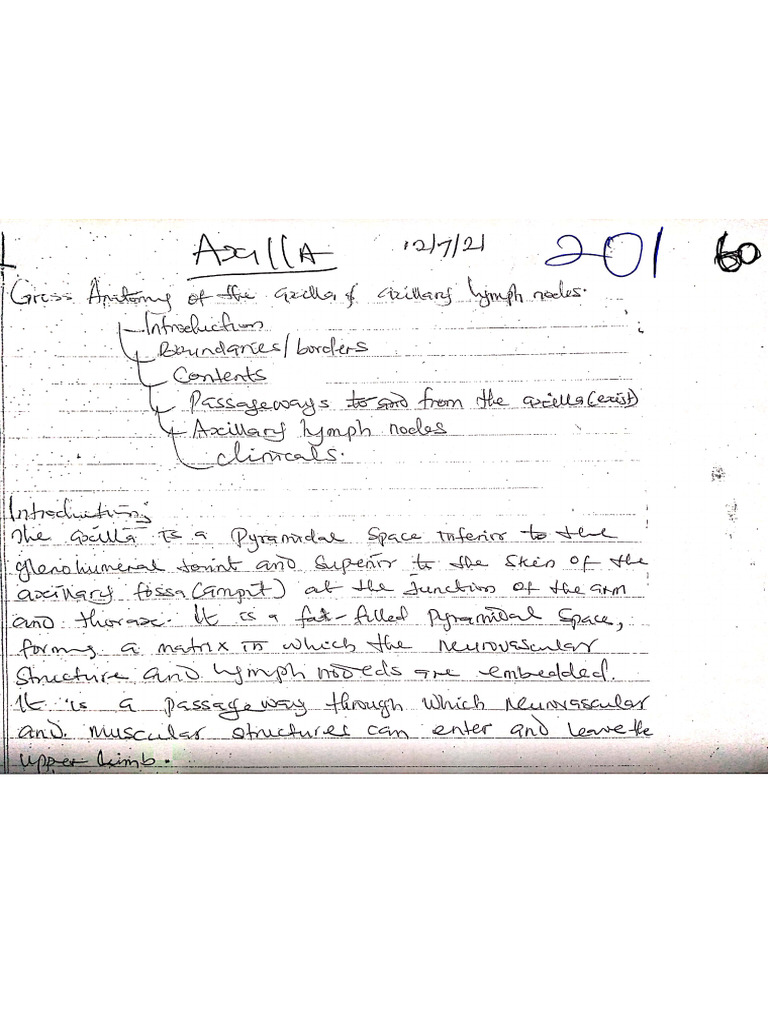 AxillA 12/7/21 201 60
Gross Anatomy of the axilla & axillary lymph nodes.
Introduction
Boundaries/borders
Contents
Passageways to and from the axilla (exist)
Axillary lymph nodes
Clinicals.
Introduction;
The axilla is a Pyramidal Space inferior to the
glenohumeral Joint and Superior to the Skin of the
axillary fossa (ampit) at the Junction of the arm
and thorax. It is a fat-filled Pyramidal Space,
forming a matrix in which the neurovascular
structure and lymph nodeds are embedded.
It is a passageway through which neurovascular
and muscular structures can enter and leave the
upper limb.